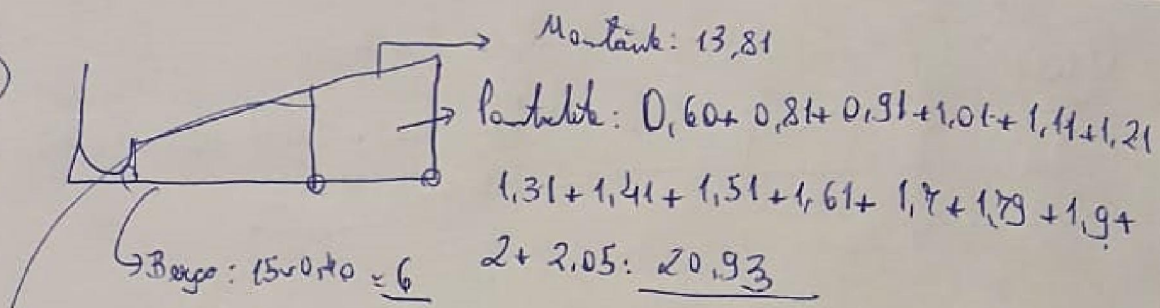 Montante: 13,81
Pontalete: 0,60+ 0,81+ 0,91+1,01+ 1,11+1,21
1,31+1,41+ 1,51+1,61+ 1,7+1,79 +1,9+
2+ 2,05: 20,93
Berço: 15x0,40 = 6